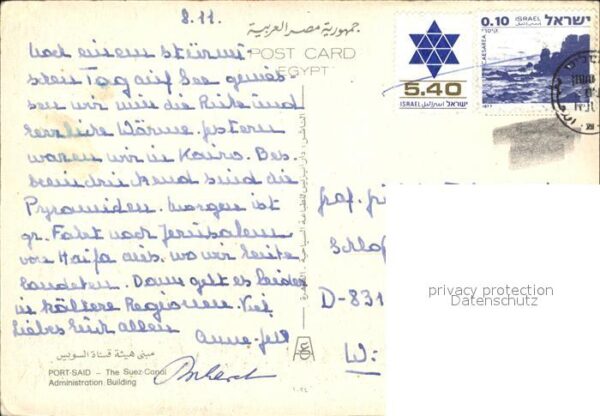 8.11.
Nach einem stürmi-
schen Tag auf See genies-
sen wir nun die Ruhe und
herrliche Wärme. Gestern
waren wir in Kairo. Be-
eindruckend sind die
Pyramiden. Morgen ist
gr. Fahrt nach Jerusalem
von Haifa aus, wo wir heute
landeten. Dann geht es leider
in kältere Regionen. Viel
Liebes Euch allen
جمهورية مصر العربية
POST CARD
EGYPT
5.40
ISRAEL اسرائيل ישראל
0.10 ISRAEL ישראל
CAESAREA
D-831
W:
privacy protection
Datenschutz
مبنى هيئة قناة السويس
PORT-SAID – The Suez-Canal
Administration Building
١٠٢٤